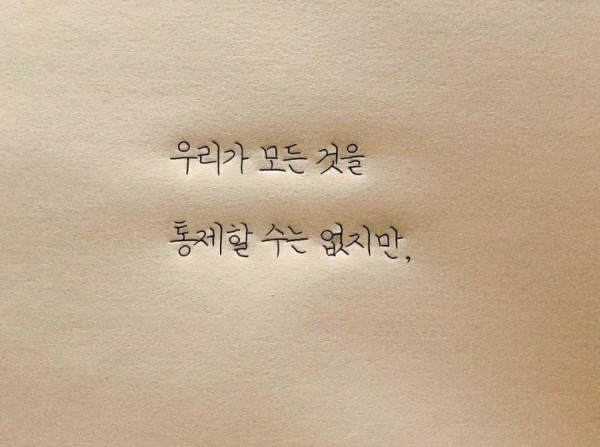 우리가 모든 것을
통제할 수는 없지만,